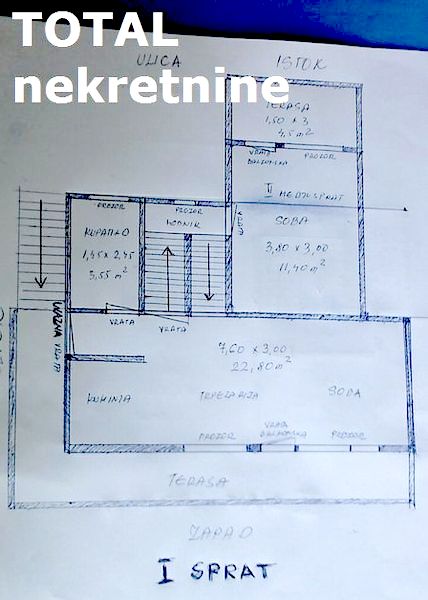 TOTAL
nekretnine
ULICA ISTOK
TERASA
1,50 x 3
4,5 m²
VRATA
BALKONSKA
PROZOR
II MEDJUSPRAT
SOBA
3,80 x 3,00
11,40 m²
PROZOR
PROZOR
HODNIK
KUPATILO
1,45 x 2,45
3,55 m²
VRATA
VRATA
7,60 x 3,00
22,80 m²
KUHINJA
TRPEZARIJA
SOBA
PROZOR
VRATA
BALKONSKA
PROZOR
TERASA
ZAPAD
I SPRAT